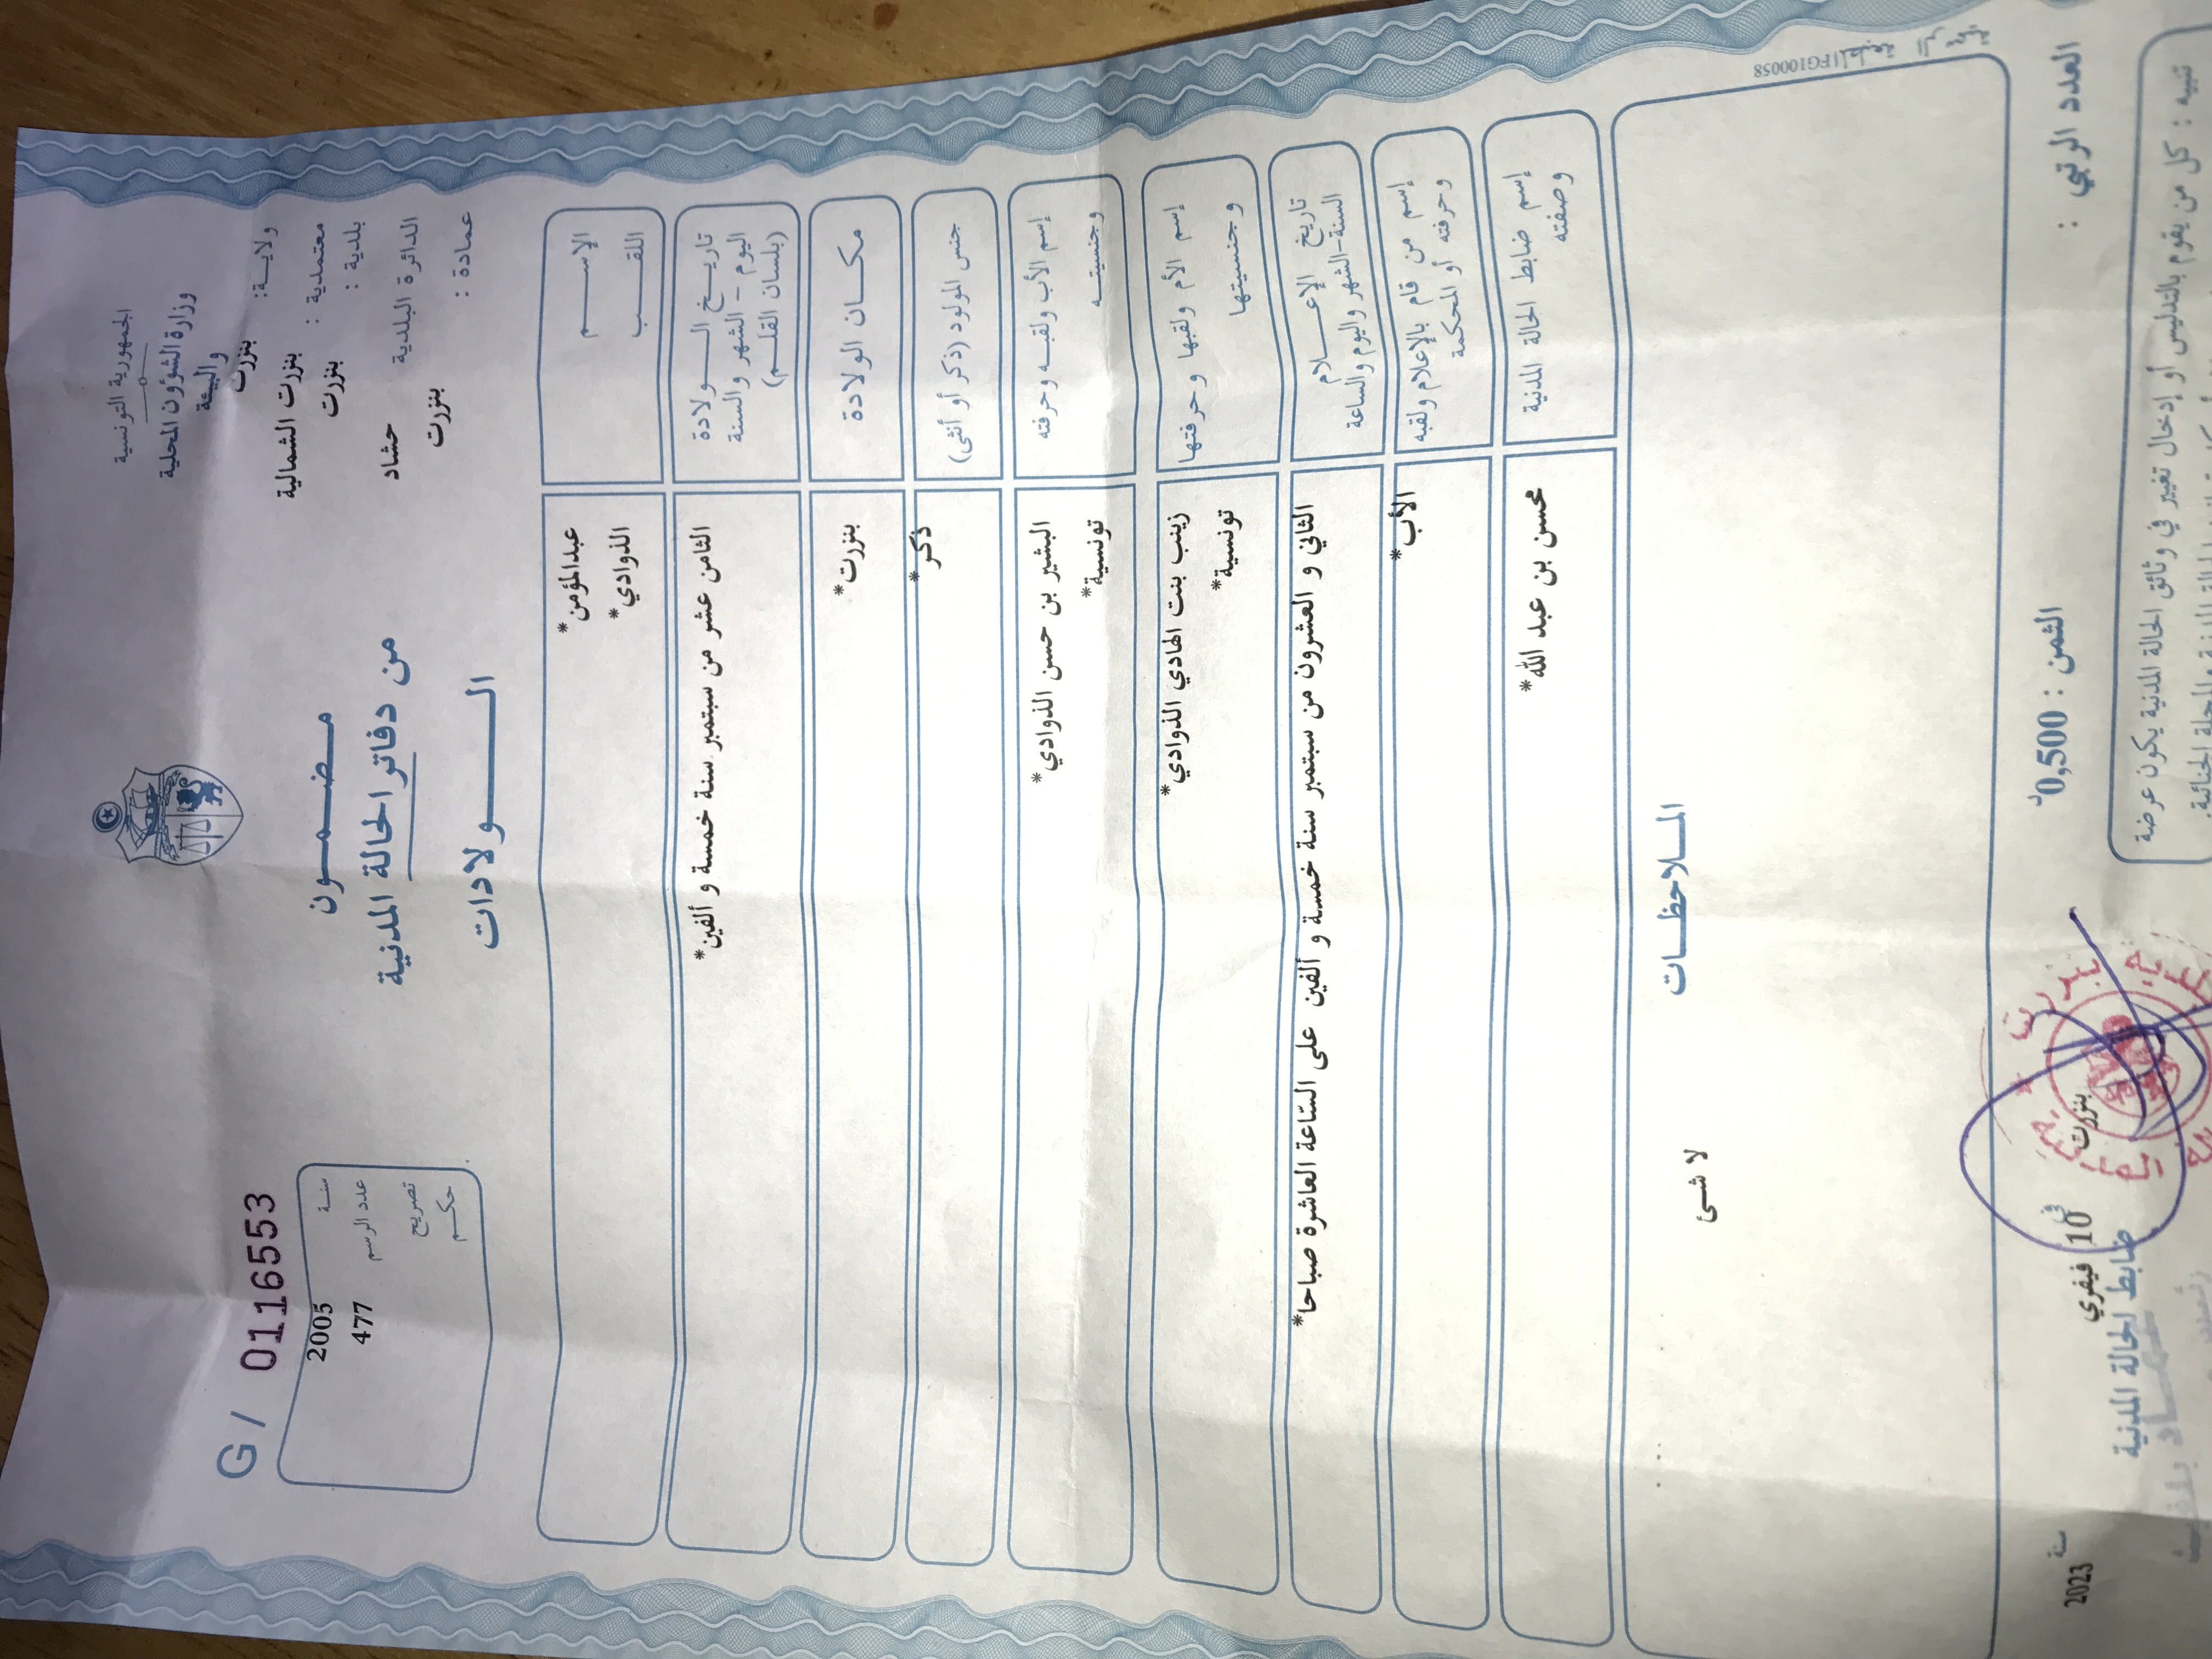 الجمهورية التونسية
وزارة الشؤون المحلية
والبيئة
ولاية: بنزرت
معتمدية : بنزرت الشمالية
بلدية : بنزرت
الدائرة البلدية حشاد
عمادة : بنزرت
مضمون
من دفاتر الحالة المدنية
الولادات
G / 0116553
سنة 2005
عدد الرسم 477
تصريح
حكم
الإسم عبدالمؤمن*
اللقب الذوادي*
تاريخ الولادة الثامن عشر من سبتمبر سنة خمسة و ألفين*
اليوم - الشهر والسنة
(بلسان القلم)
مكان الولادة بنزرت*
جنس المولود (ذكر أو أنثى) ذكر*
إسم الأب ولقبه وحرفته البشير بن حسن الذوادي*
وجنسيته تونسية*
إسم الأم ولقبها وحرفتها زينب بنت الهادي الذوادي*
وجنسيتها تونسية*
تاريخ الإعلام الثاني و العشرون من سبتمبر سنة خمسة و ألفين على الساعة العاشرة صباحا*
السنة-الشهر واليوم والساعة
إسم من قام بالإعلام ولقبه الأب*
وحرفته أو المحكمة
إسم ضابط الحالة المدنية محسن بن عبد الله*
وصفته
الملاحظات
لا شئ
FG100058
العدد الرتبي :
الثمن : 0,500د
بنزرت في 10 فيفري سنة 2023
ضابط الحالة المدنية
تنبيه : كل من يقوم بالتدليس أو إدخال تغيير في وثائق الحالة المدنية يكون عرضة
والمجلة الجنائية.